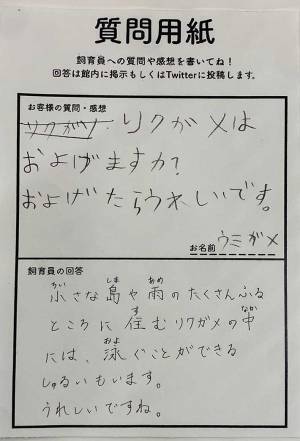 質問用紙
飼育員への質問や感想を書いてね！
回答は館内に掲示もしくはTwitterに投稿します。
お客様の質問・感想
リクガメは
およげますか？
およげたらうれしいです。
お名前 ウミガメ
飼育員の回答
小さな島や雨のたくさんふる
ところに住むリクガメの中
には、泳ぐことができる
しゅるいもいます。
うれしいですね。